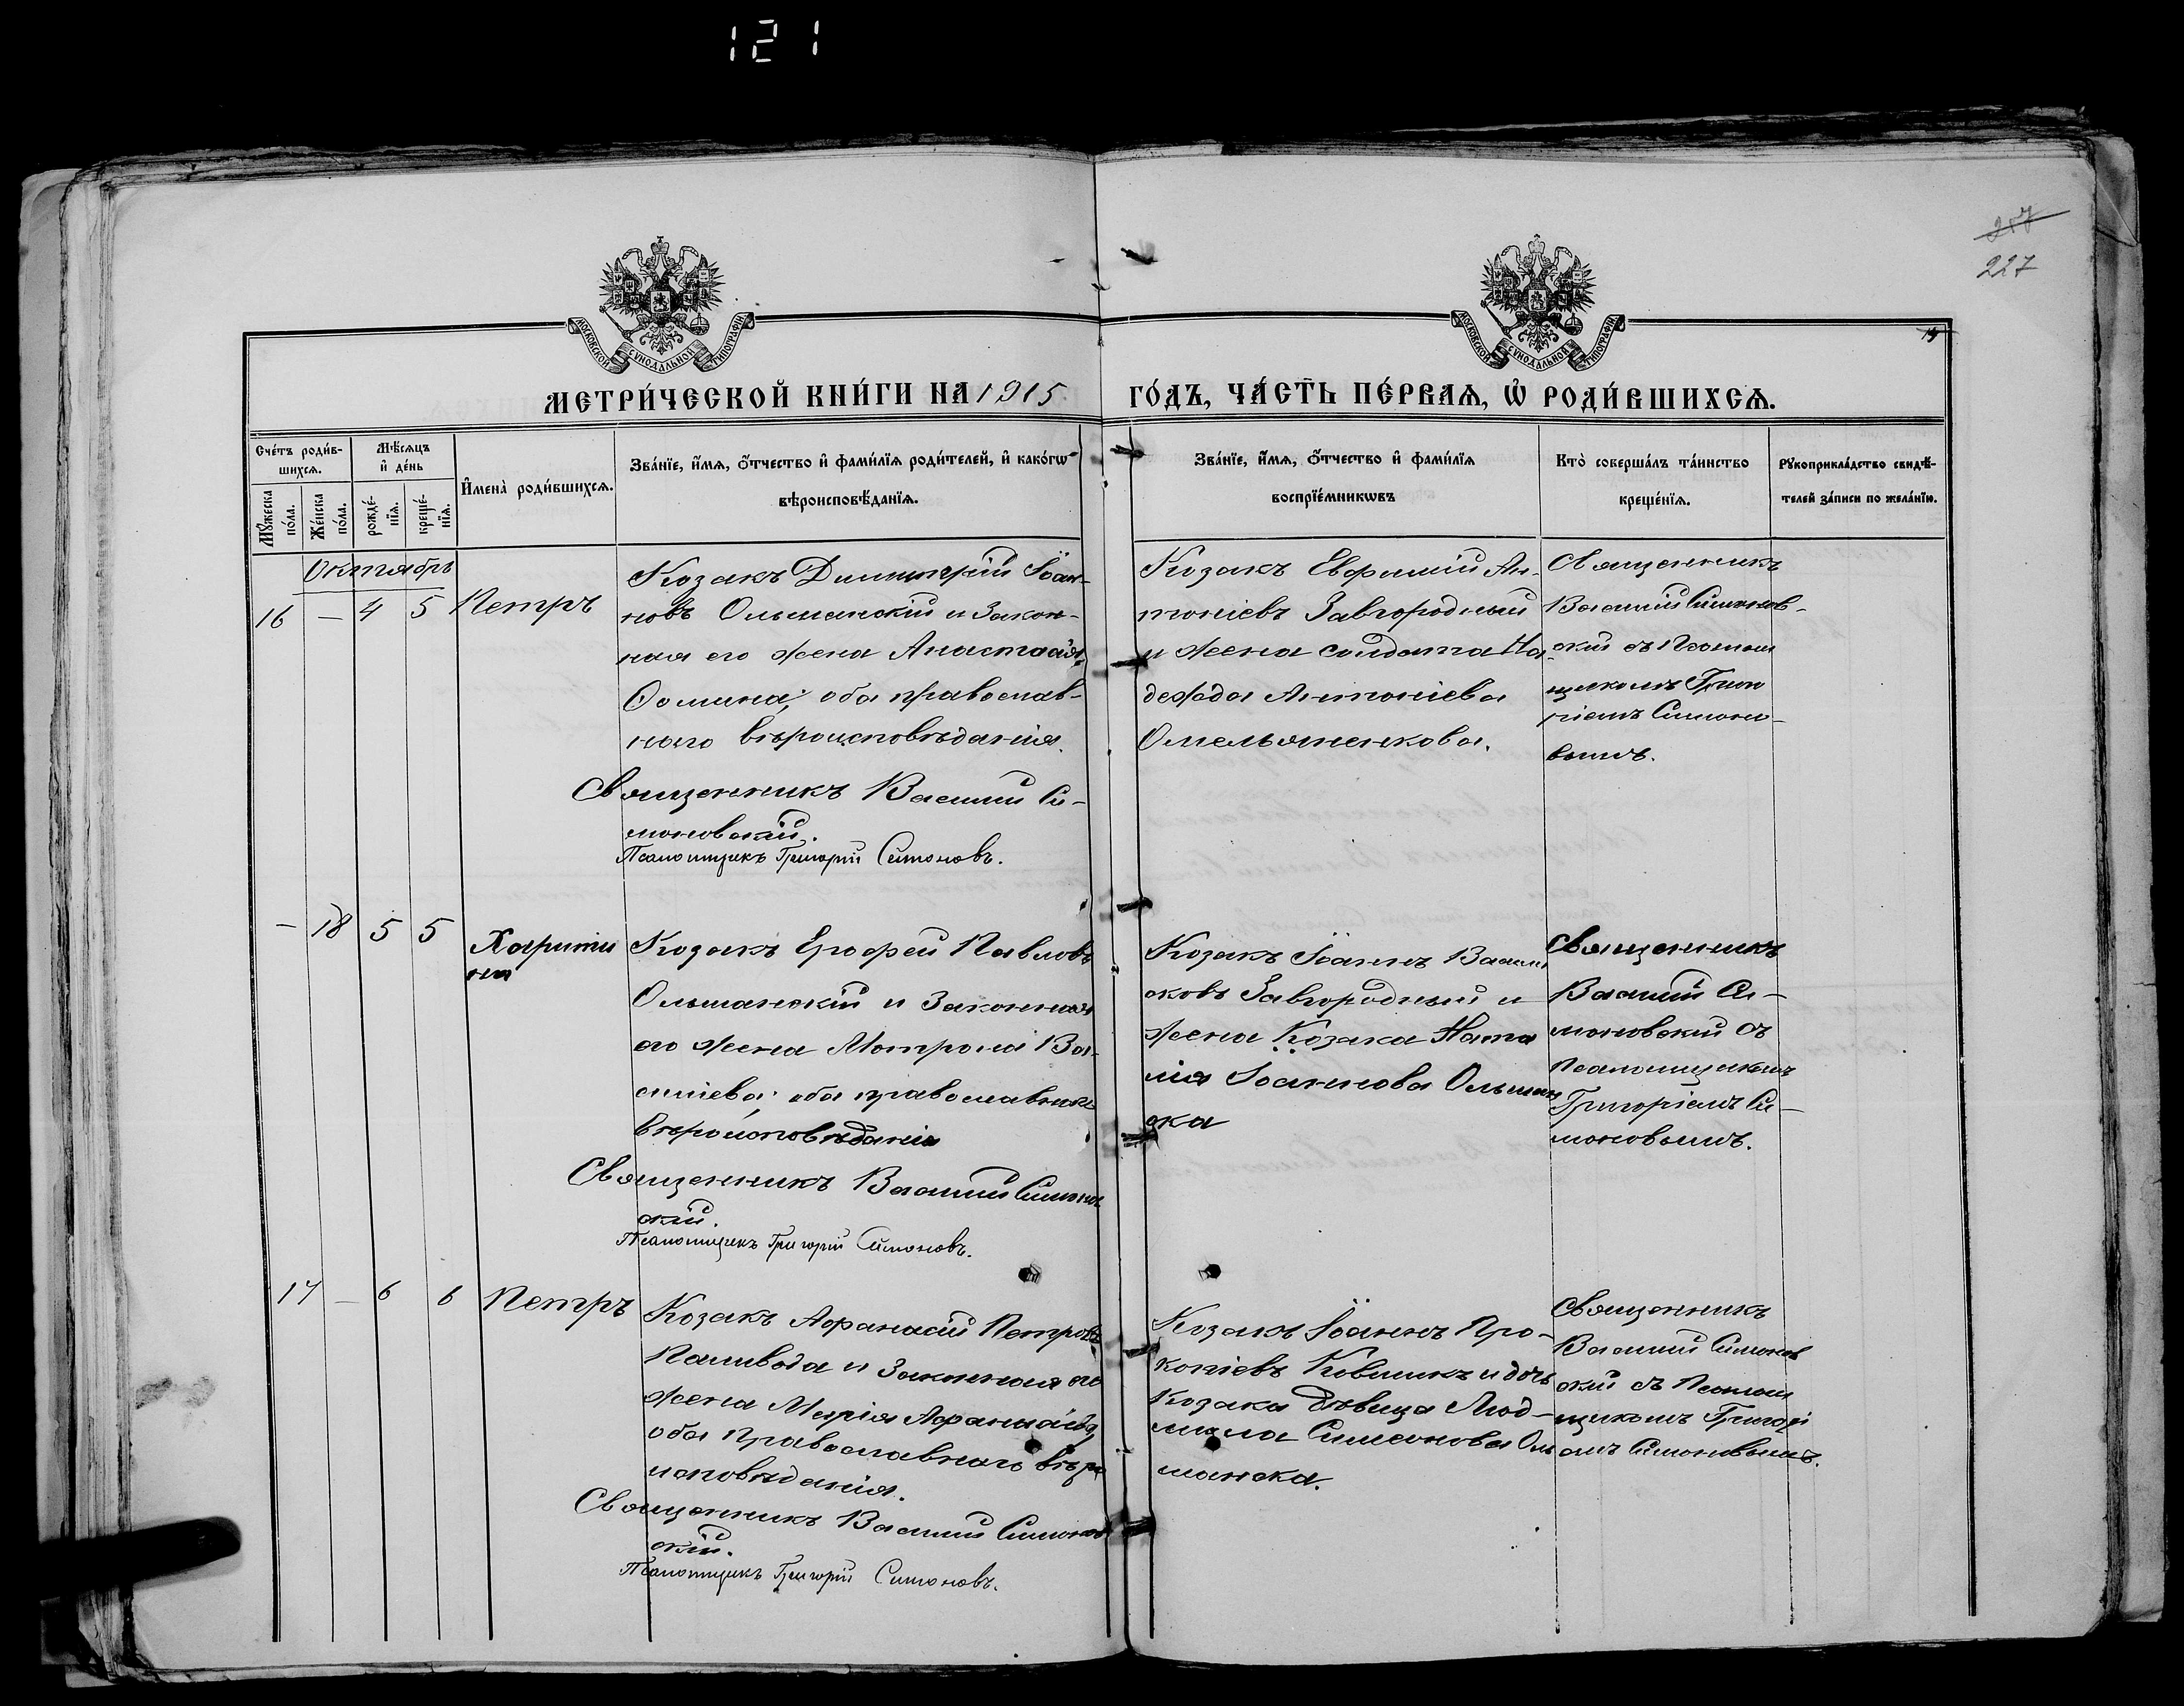 121
257
227
МОСКОВСКОЙ СѴНОДАЛЬНОЙ ТИПОГРАФІИ
МОСКОВСКОЙ СѴНОДАЛЬНОЙ ТИПОГРАФІИ
МЕТРИ́ЧЕСКОЙ КНИ́ГИ НА 1915 ГО́ДЪ, ЧА́СТЬ ПЕ́РВАѦ, Ѡ҆ РОДИ́ВШИХСѦ.
Сче́тъ роди́в-
шихсѧ.
Мѣ́сѧцъ
и҆ де́нь
Мꙋ́жеска
по́ла.
Же́нска
по́ла.
рожде́-
нїѧ.
креще́-
нїѧ.
И҆мена̀ роди́вшихсѧ.
Зва́нїе, и҆́мѧ, ѻ҆́тчество и҆ фами́лїѧ роди́телей, и҆ како́гѡ
вѣроисповѣ́данїѧ.
Зва́нїе, и҆́мѧ, ѻ҆́тчество и҆ фами́лїѧ
воспрїе́мникѡвъ
Кто̀ соверша́лъ та́инство
креще́нїѧ.
Рꙋкоприкла́дство свидѣ́-
телей за́писи по жела́нїю.
Октябрь
16 — 4 5 Петръ
Козакъ Димитрій Іоан-
новъ Ольшанскій и закон-
ная его жена Анастасія
Ѳомина; оба православ-
наго вѣроисповѣданія.
Священникъ Василій Си-
моновскій.
Псаломщикъ Григорій Симоновъ.
Козакъ Евфимій Ан-
тоніевъ Завгородный
и жена солдата На-
дежда Антоніева
Омельяненкова.
Священникъ
Василій Симонов-
скій съ Псалом
щикомъ Григо
ріемъ Симоно-
вымъ.
— 18 5 5 Харити
на
Козакъ Ерофей Павловъ
Ольшанскій и законная
его жена Матрона Ва-
силіева; оба православнаго
вѣроисповѣданія
Священникъ Василій Симонов
скій.
Псаломщикъ Григорій Симоновъ.
Козакъ Іоаннъ Васил
ковъ Завгородный и
жена Козака Ната
лія Іоаннова Ольшан
ска
Священникъ
Василій Си-
моновскій съ
Псаломщикомъ
Григоріемъ Си-
моновымъ.
17 — 6 6 Петръ
Козакъ Аѳанасій Петровъ
Паливода и законная его
жена Марія Аѳанасіева,
оба Православнаго вѣро
исповѣданія.
Священникъ Василій Симонов
скій.
Псаломщикъ Григорій Симоновъ.
Козакъ Іоаннъ Про-
копіевъ Ковшикъ и дочь
Козака дѣвица Люд-
мила Симеонова Оль
шанска.
Священникъ
Василій Симонов
скій съ Псалом
щикомъ Григорі
емъ Симоновымъ.